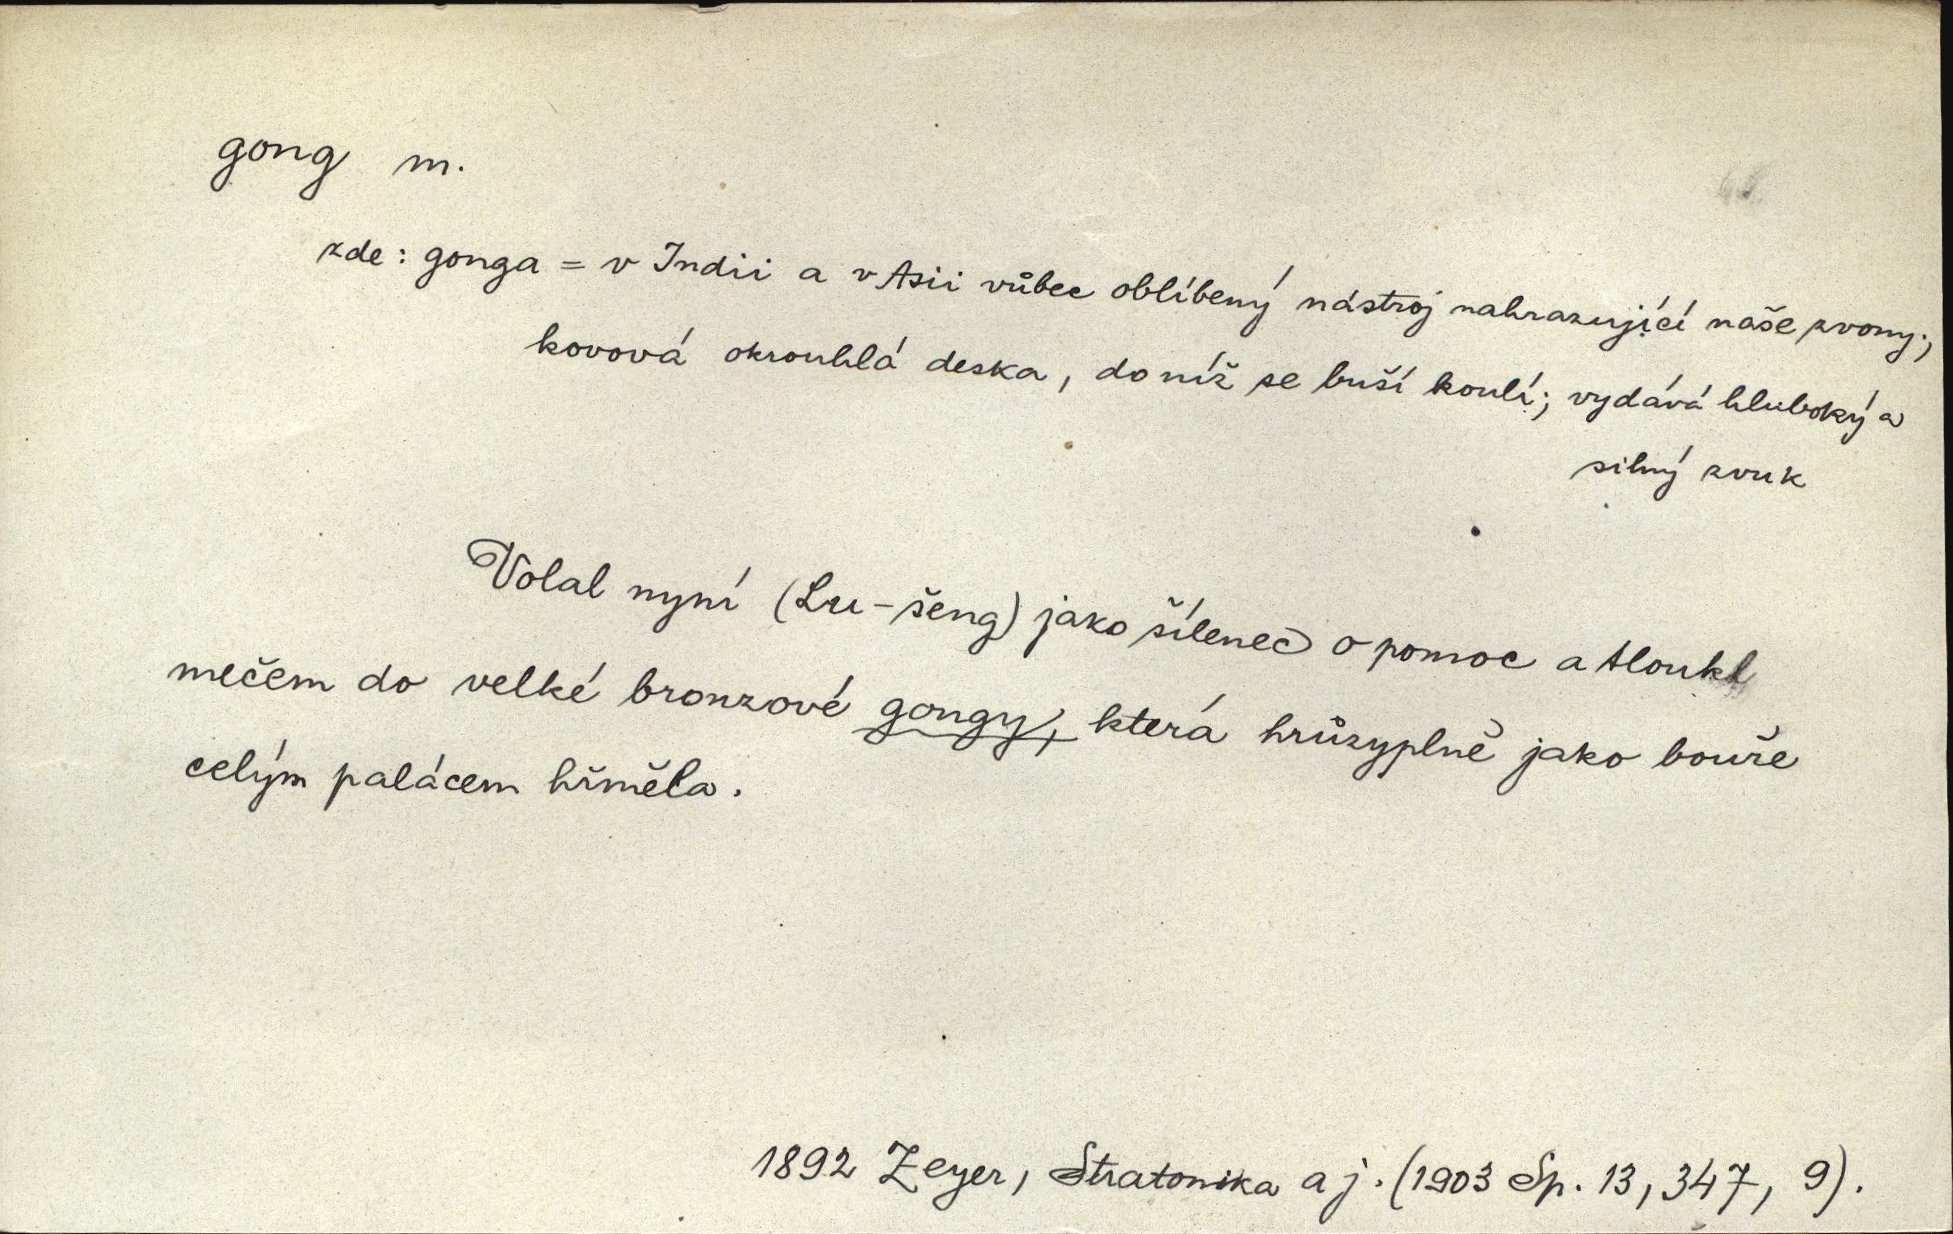 gong m.
zde: gonga = v Indii a v Asii vůbec oblíbený nástroj nahrazující naše zvony;
kovová okrouhlá deska, do níž se buší koulí; vydává hluboký a
silný zvuk
Volal nyní (Lu-šeng) jako šílenec o pomoc a tloukl
mečem do velké bronzové gongy, která hrůzyplně jako bouře
celým palácem hřměla.
1892 Zeyer, Stratonika a j. (1903 Sp. 13, 347, 9).